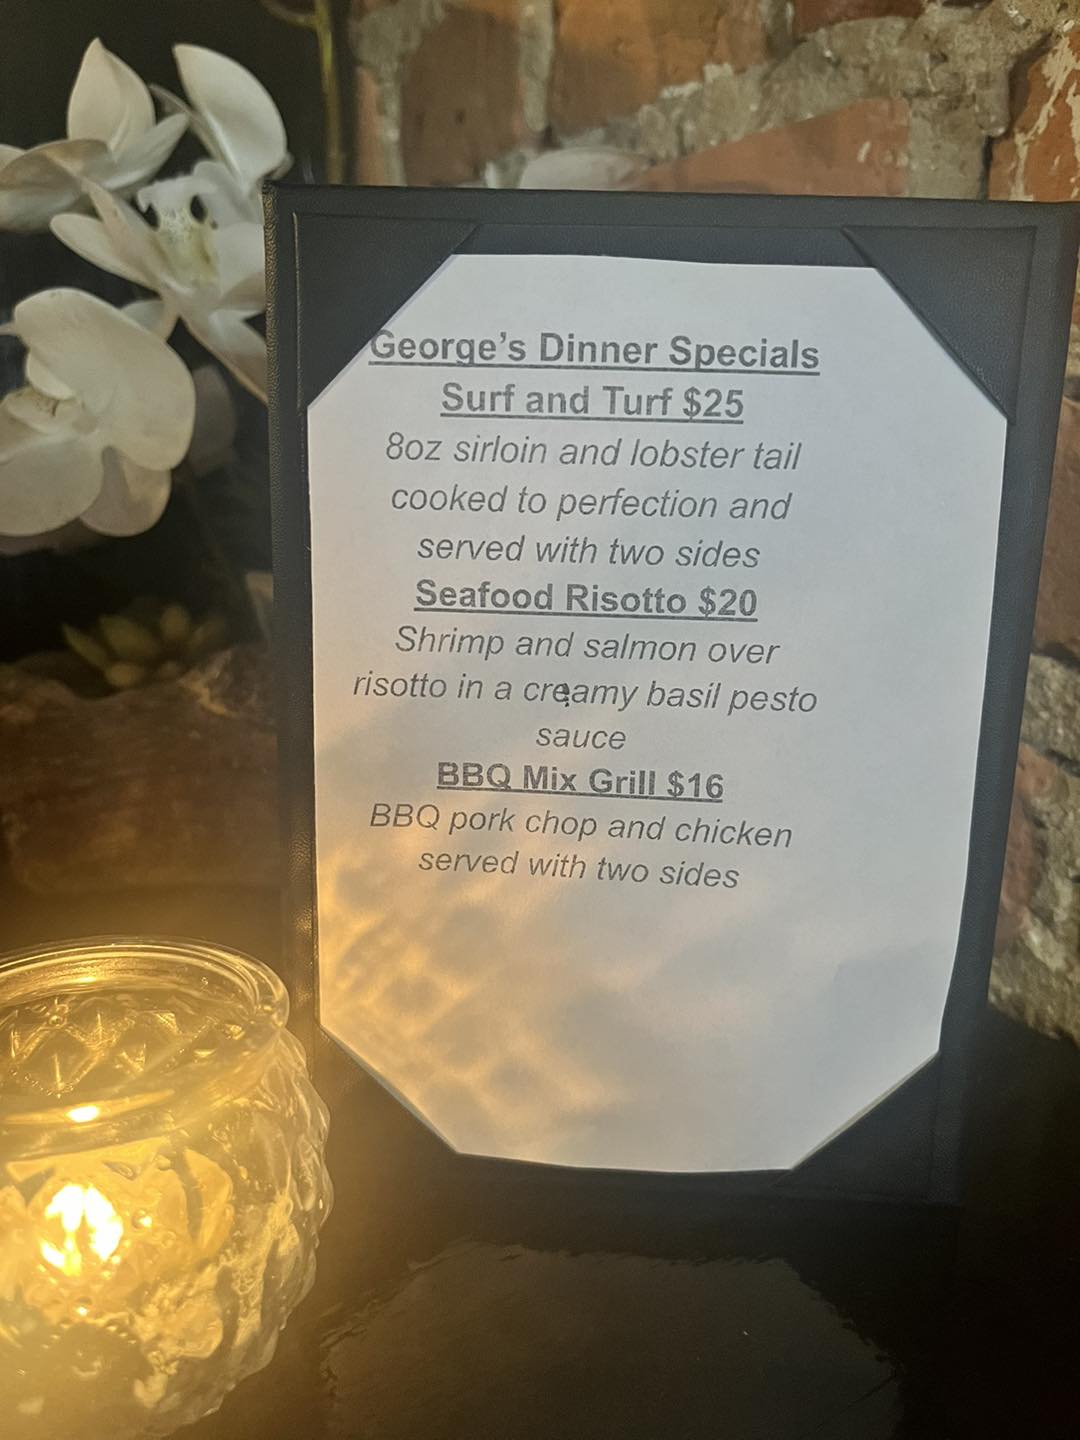 George's Dinner Specials
Surf and Turf $25
8oz sirloin and lobster tail
cooked to perfection and
served with two sides
Seafood Risotto $20
Shrimp and salmon over
risotto in a creamy basil pesto
sauce
BBQ Mix Grill $16
BBQ pork chop and chicken
served with two sides